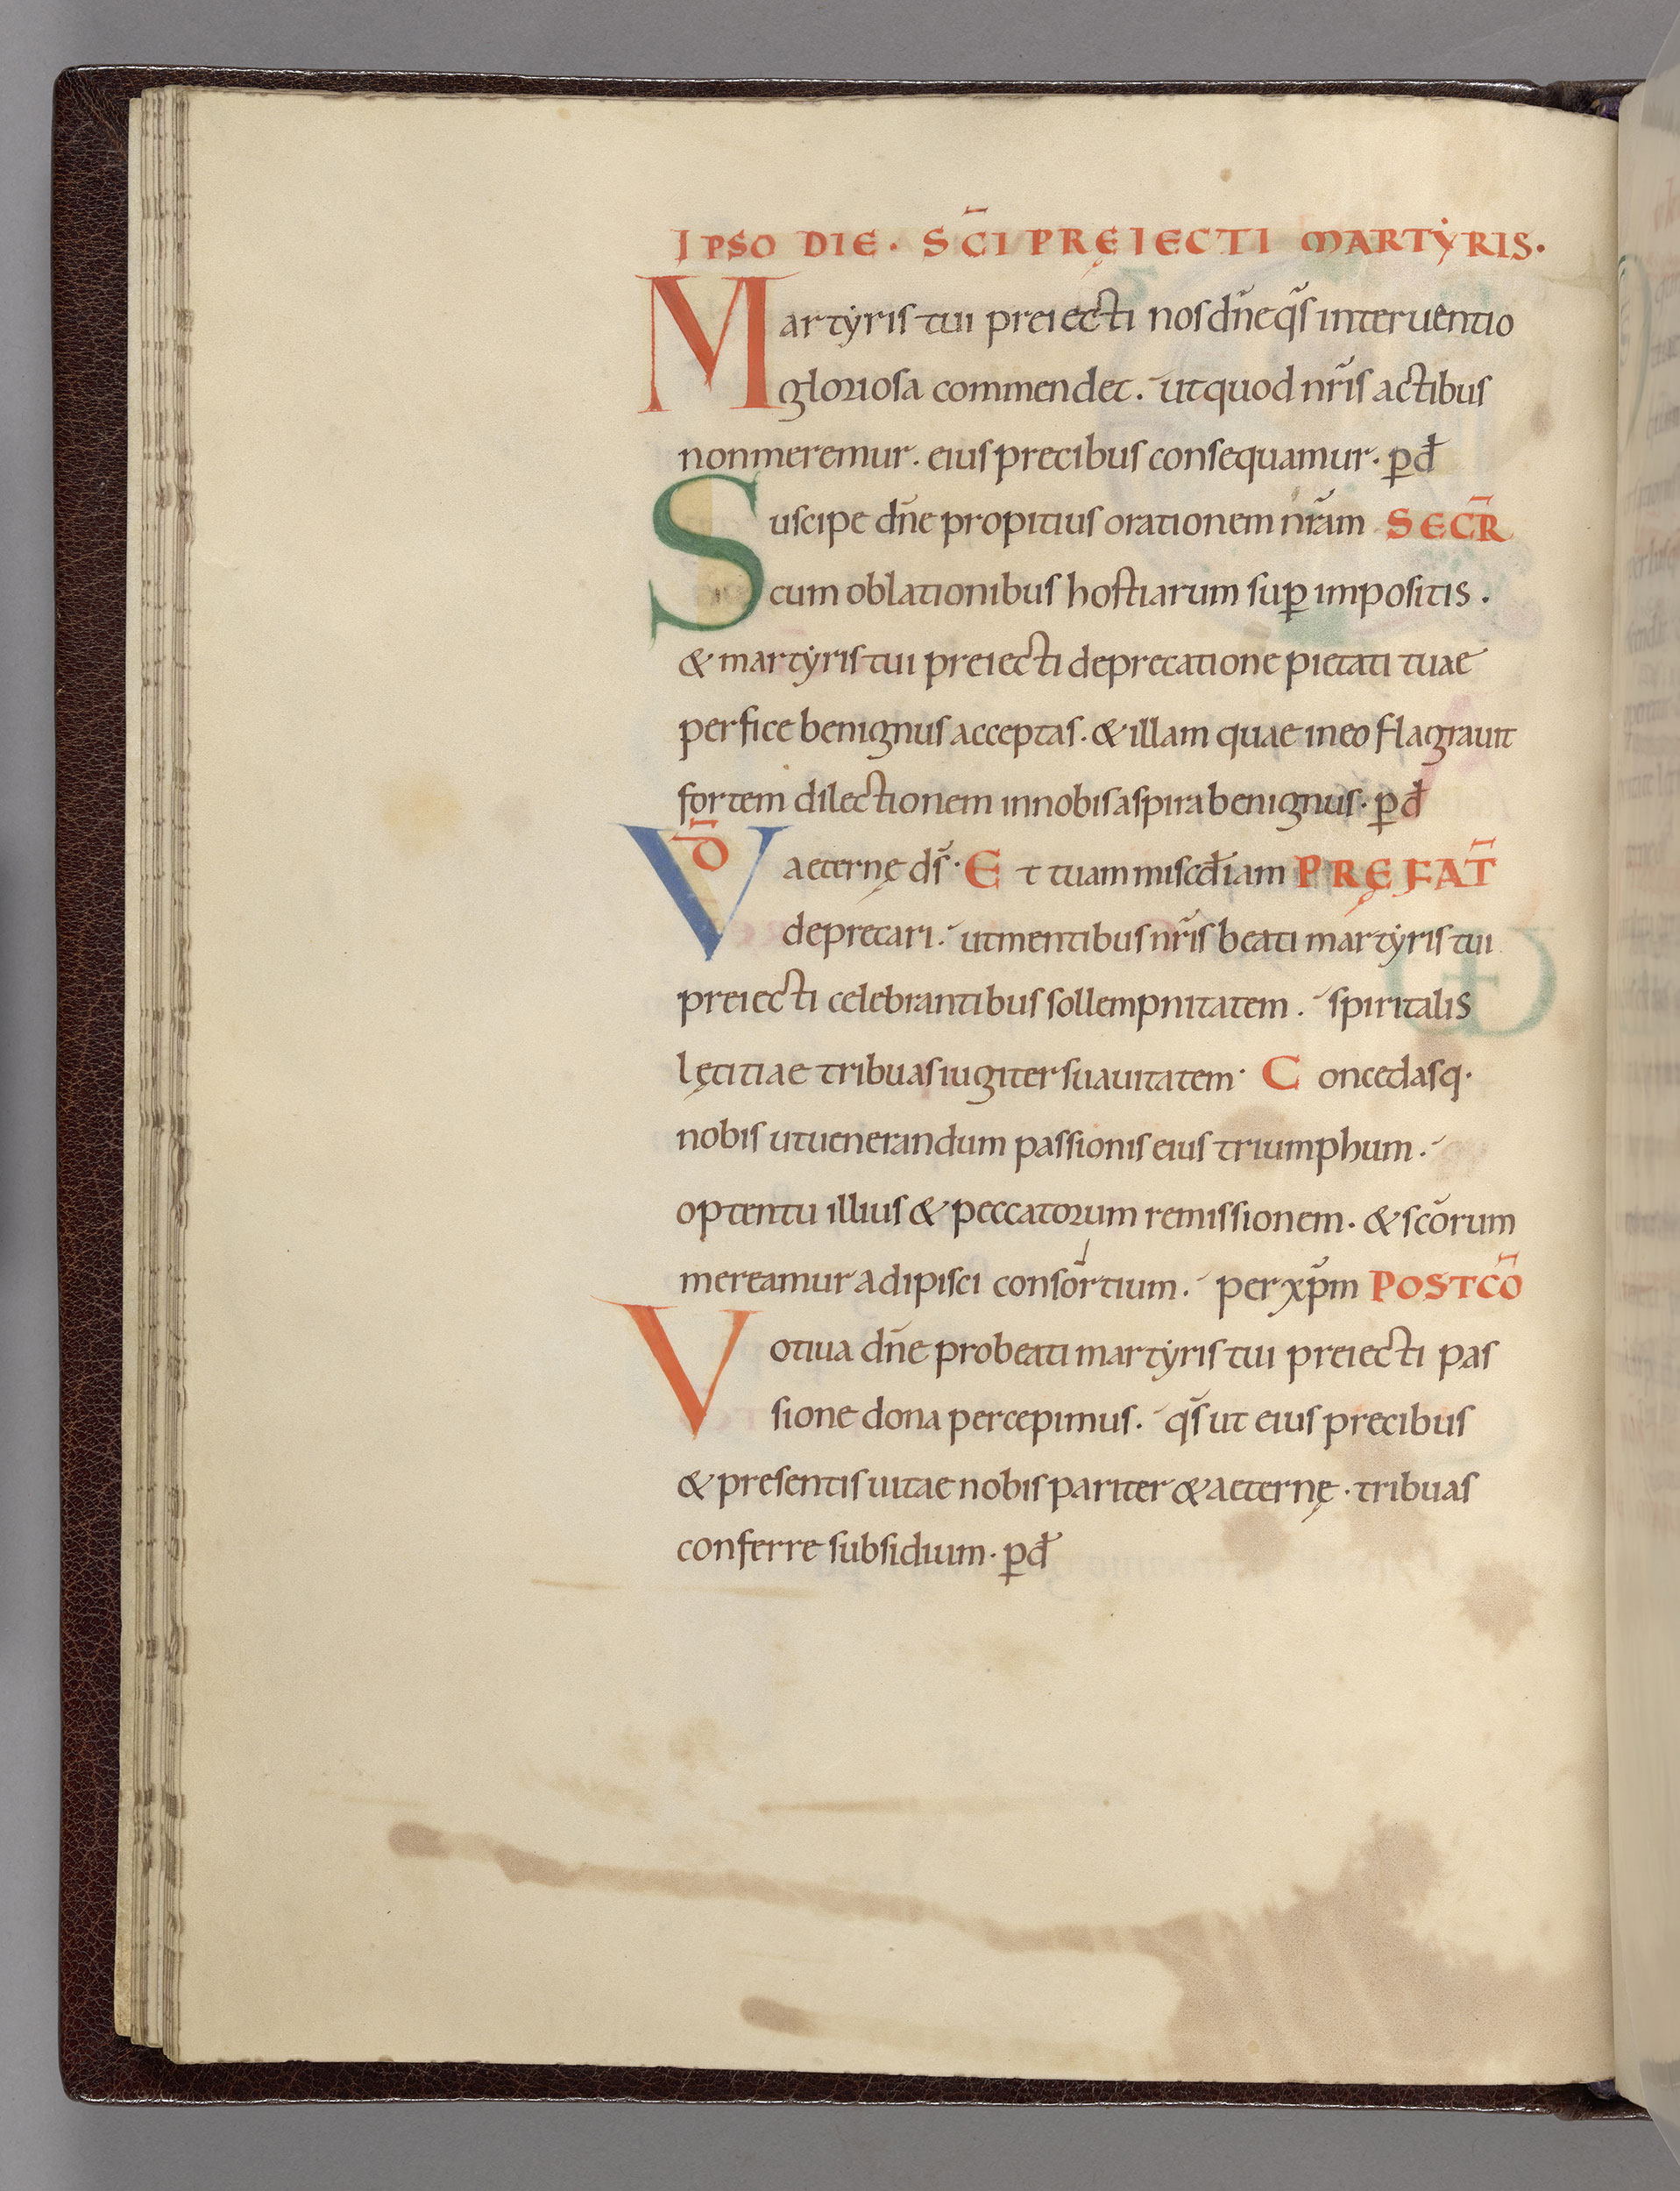 IPSO DIE · SC̄I PRĘIECTI MARTẎRIS·
Martẏris tui preiecti nos dn̄e qs̄ interuentio
gloriosa commendet. ut quod nr̄is actibus
non meremur. eius precibus consequamur. ꝑ đ
Suscipe dn̄e propitius orationem nr̄am SECR̄
cum oblationibus hostiarum suꝑ impositis .
& martẏris tui preiecti deprecatione pietati tuae
perfice benignus acceptas. & illam quae in eo flagrauit
fortem dilectionem in nobis aspira benignus. ꝑ đ
VD̄ aeternę ds̄· Et tuam misc̄diam PRĘFAT̄
deprecari. ut mentibus nr̄is beati martẏris tui
preiecti celebrantibus sollempnitatem. spiritalis
lętitiae tribuas iugiter suauitatem· Concedasq·
nobis ut uenerandum passionis eius triumphum.
optentu illius & peccatorum remissionem. & sc̄orum
mereamur adipisci consortium. per xp̄m POSTCŌ
Votiua dn̄e pro beati martẏris tui preiecti pas
sione dona percepimus. qs̄ ut eius precibus
& presentis uitae nobis pariter & aeternę · tribuas
conferre subsidium. ꝑ đ